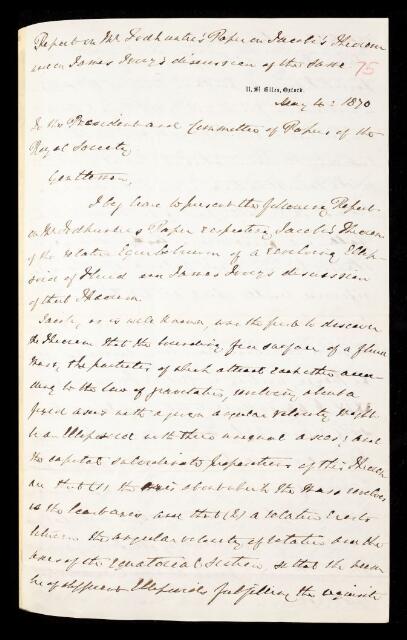 Report on Mr Todhunter's Paper on Jacobi's Theorem
and on James Ivory's discussion of the same
75
11, St Giles, Oxford.
May 4: 1870
To the President and Committee of Papers of the
Royal Society
Gentlemen,
I beg leave to present the following Report
on Mr Todhunter's Paper respecting Jacobi's Theorem
of the relative Equilibrium of a revolving Ellip-
soid of Fluid and James Ivory's discussion
of that Theorem.
Jacobi, as is well known, was the first to discover
the Theorem that the bounding free surface of a fluid
mass, the particles of which attract each other accor-
ding to the law of gravitation, revolving about a
fixed axis with a given angular velocity might
be an Ellipsoid with three unequal axes; and
the capital subordinate propositions of this Theorem
are that (1) the axis about which the mass revolves
is the least axis, and that (2) a relation exists
between the angular velocity of rotation and the
axes of the equatorial section, so that the
of different Ellipsoids fulfilling the requisite